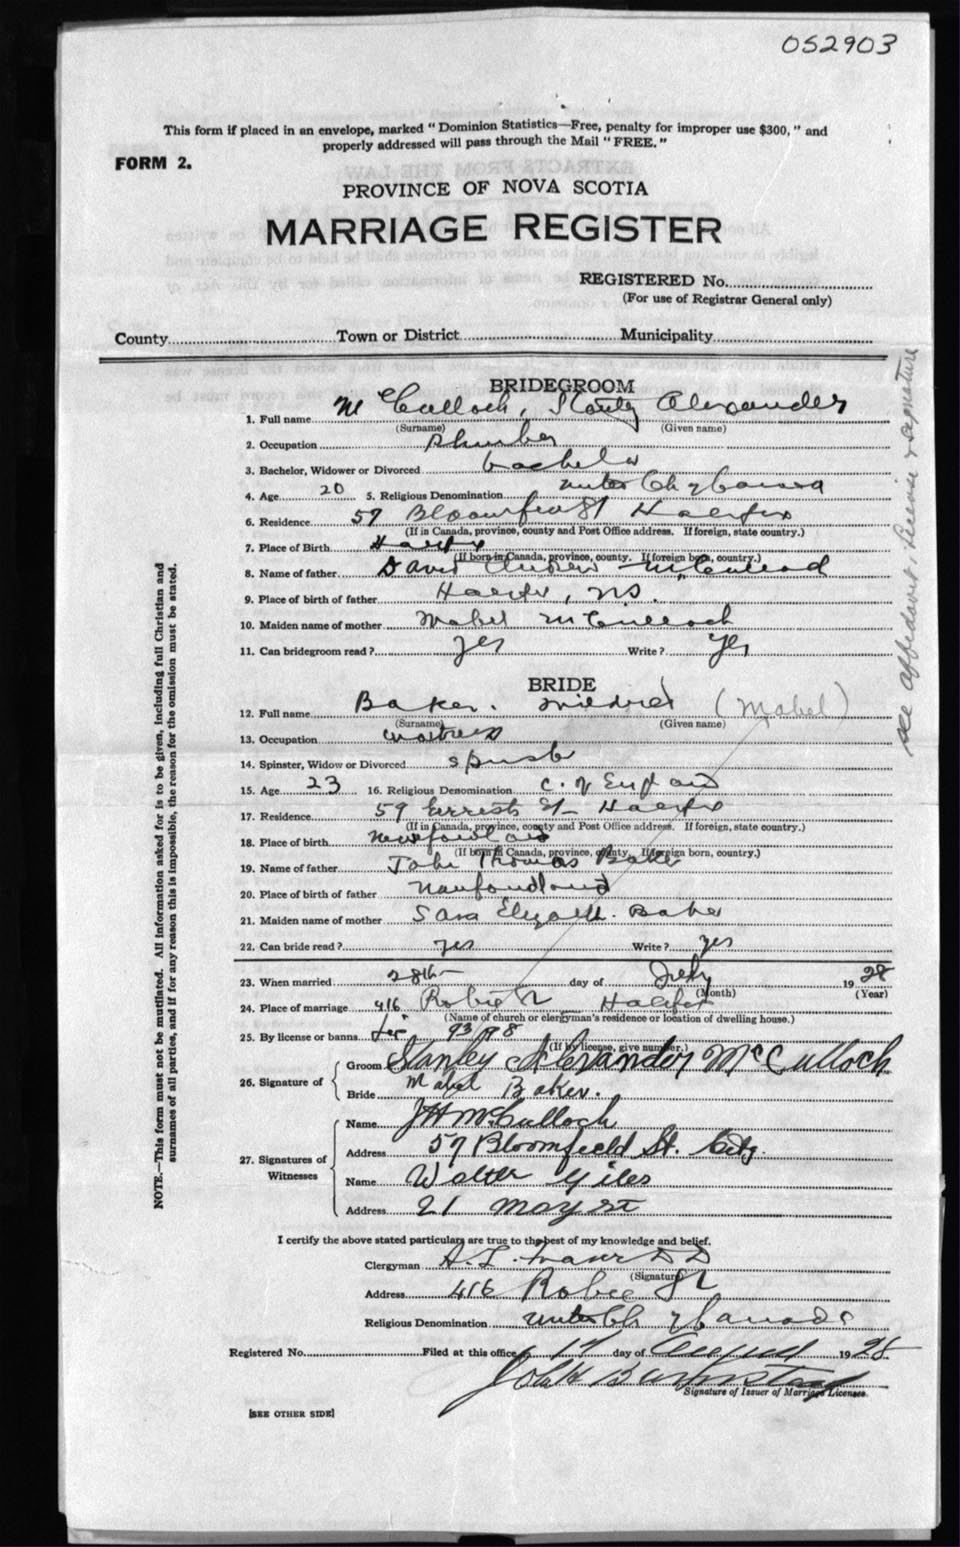 052903
This form if placed in an envelope, marked "Dominion Statistics—Free, penalty for improper use $300," and
properly addressed will pass through the Mail "FREE."
FORM 2.
PROVINCE OF NOVA SCOTIA
MARRIAGE REGISTER
REGISTERED No.
(For use of Registrar General only)
County Town or District Municipality
BRIDEGROOM
1. Full name McCulloch, Stanley Alexander
(Surname) (Given name)
2. Occupation Plumber
3. Bachelor, Widower or Divorced bachelor
4. Age 20 5. Religious Denomination United Ch of Canada
6. Residence 57 Bloomfield St Halifax
(If in Canada, province, county and Post Office address. If foreign, state country.)
7. Place of Birth Halifax
(If born in Canada, province, county. If foreign born, country.)
8. Name of father David Andrew McCulloch
9. Place of birth of father Halifax, NS.
10. Maiden name of mother Mabel McCulloch
11. Can bridegroom read? yes Write? yes
BRIDE
12. Full name Baker. Mildred (Mabel)
(Surname) (Given name)
13. Occupation waitress
14. Spinster, Widow or Divorced spinster
15. Age 23 16. Religious Denomination C. of England
17. Residence 59 St Halifax
(If in Canada, province, county and Post Office address. If foreign, state country.)
18. Place of birth Newfoundland
(If born in Canada, province, county. If foreign born, country.)
19. Name of father John Thomas Baker
20. Place of birth of father Newfoundland
21. Maiden name of mother Sara Elizabeth Baker
22. Can bride read? yes Write? yes
23. When married 28th day of July 1928
(Month) (Year)
24. Place of marriage 416 Robie St Halifax
(Name of church or clergyman's residence or location of dwelling house.)
25. By license or banns 93198
(If by license, give number.)
26. Signature of Groom Stanley Alexander McCulloch
Bride Mabel Baker.
27. Signatures of Witnesses Name JH McCulloch
Address 57 Bloomfield St. City.
Name Walter Giles
Address 21 May St
I certify the above stated particulars are true to the best of my knowledge and belief.
Clergyman A. L. Fraser DD
(Signature)
Address 416 Robie St
Religious Denomination United Ch of Canada
Registered No. Filed at this office 17 day of August 1928
Signature of Issuer of Marriage Licenses.
[SEE OTHER SIDE]
NOTE.—This form must not be mutilated. All information asked for is to be given, including full Christian and
surnames of all parties, and if for any reason this is impossible, the reason for the omission must be stated.
see affidavit, license & signature